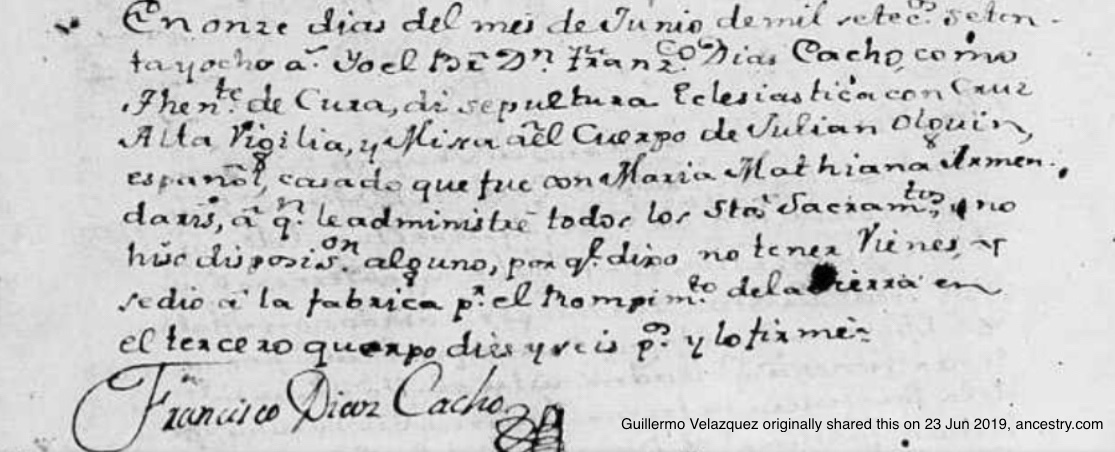 En onze dias del mes de Junio de mil setecs. seten-
ta y ocho as. Yo el Br. Dn. Franzco. Dias Cacho, como
Thente. de Cura, di sepultura Eclesiastica con Cruz
Alta Vigilia, y Missa a el Cuerpo de Julian Olguin,
español, casado que fue con Maria Mathiana Armen-
daris, a qn. le administre todos los Stos. Sacramtos., y no
hiso disposison. alguno, por qe. dixo no tener Vienes, y
se dio a la fabrica pr. el Rompimto. de la tierra en
el tercero querpo dies y seis ps. y lo firme=
Francisco Diaz Cacho
Guillermo Velazquez originally shared this on 23 Jun 2019, ancestry.com